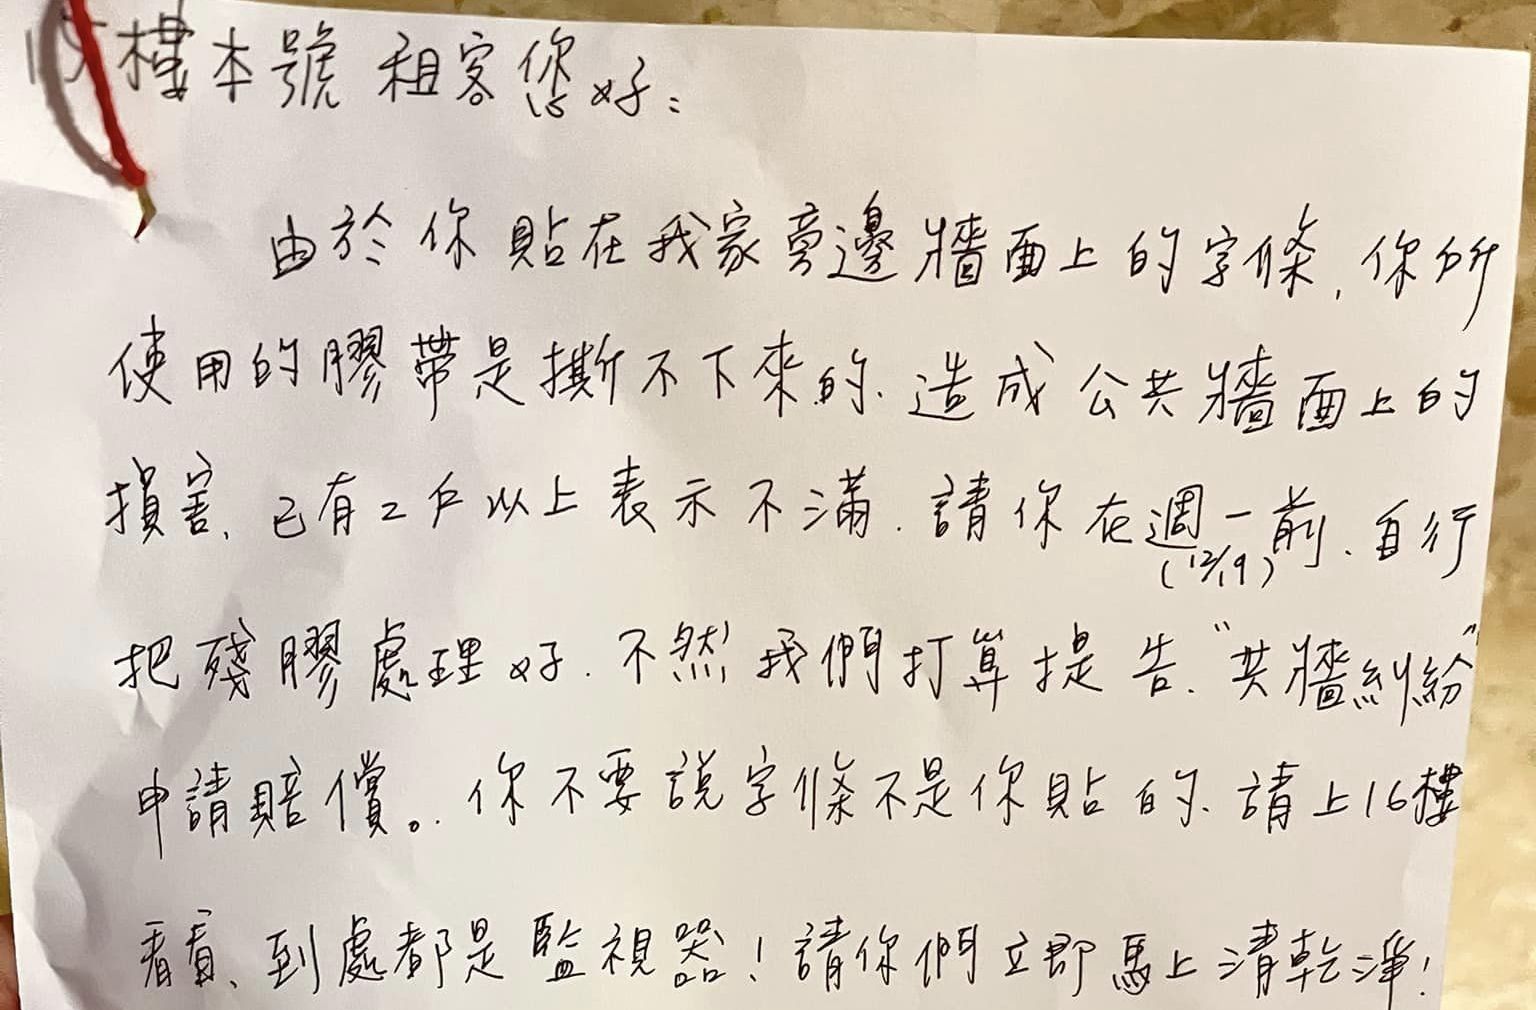 樓本號 租客您好:
由於你貼在我家旁邊牆面上的字條, 你所
使用的膠帶是撕不下來的. 造成公共牆面上的
損害, 已有2戶以上表示不滿. 請你在週一前、自行
(12/19)
把殘膠處理好. 不然我們打算提告. "共牆糾紛"
申請賠償。. 你不要說字條不是你貼的、請上16樓
看看、到處都是監視器! 請你們立即馬上清乾淨!